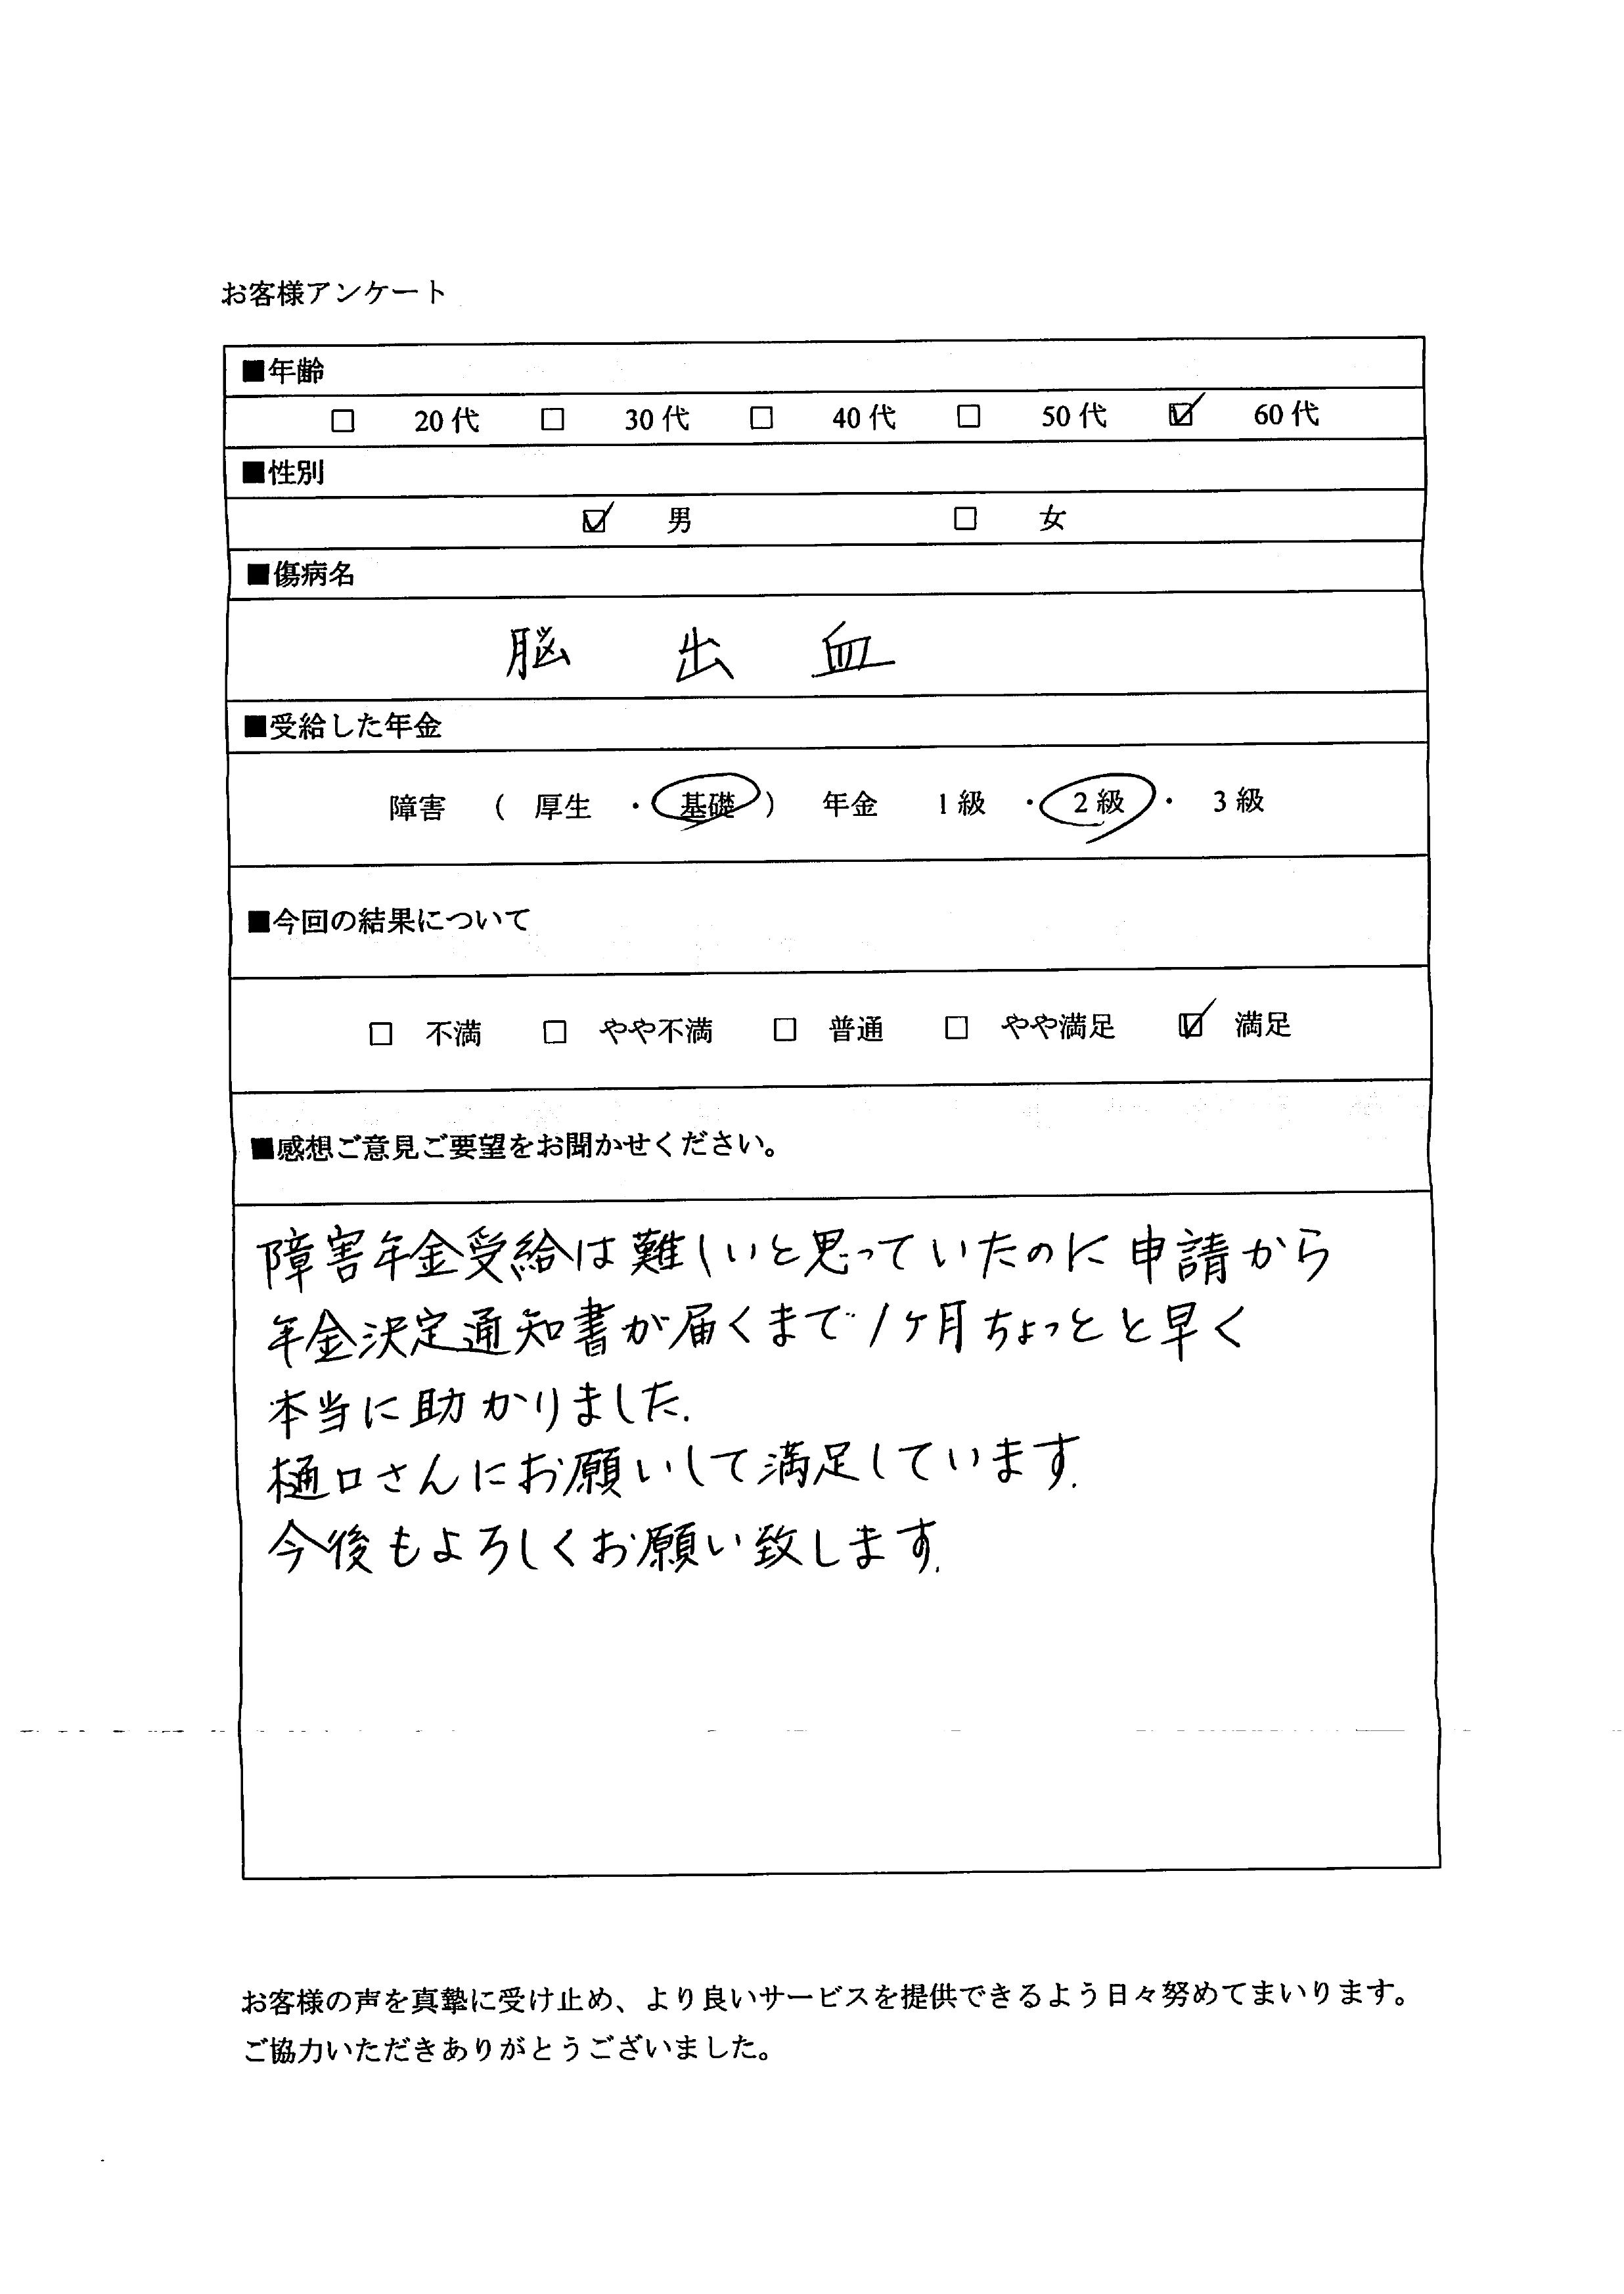 お客様アンケート
■年齢
□ 20代 □ 30代 □ 40代 □ 50代 ☑ 60代
■性別
☑ 男 □ 女
■傷病名
脳出血
■受給した年金
障害 ( 厚生 ・ 基礎 ) 年金 1級 ・ 2級 ・ 3級
■今回の結果について
□ 不満 □ やや不満 □ 普通 □ やや満足 ☑ 満足
■感想ご意見ご要望をお聞かせください。
障害年金受給は難しいと思っていたのに申請から
年金決定通知書が届くまで1ヶ月ちょっとと早く
本当に助かりました.
樋口さんにお願いして満足しています.
今後もよろしくお願い致します.
お客様の声を真摯に受け止め、より良いサービスを提供できるよう日々努めてまいります。
ご協力いただきありがとうございました。